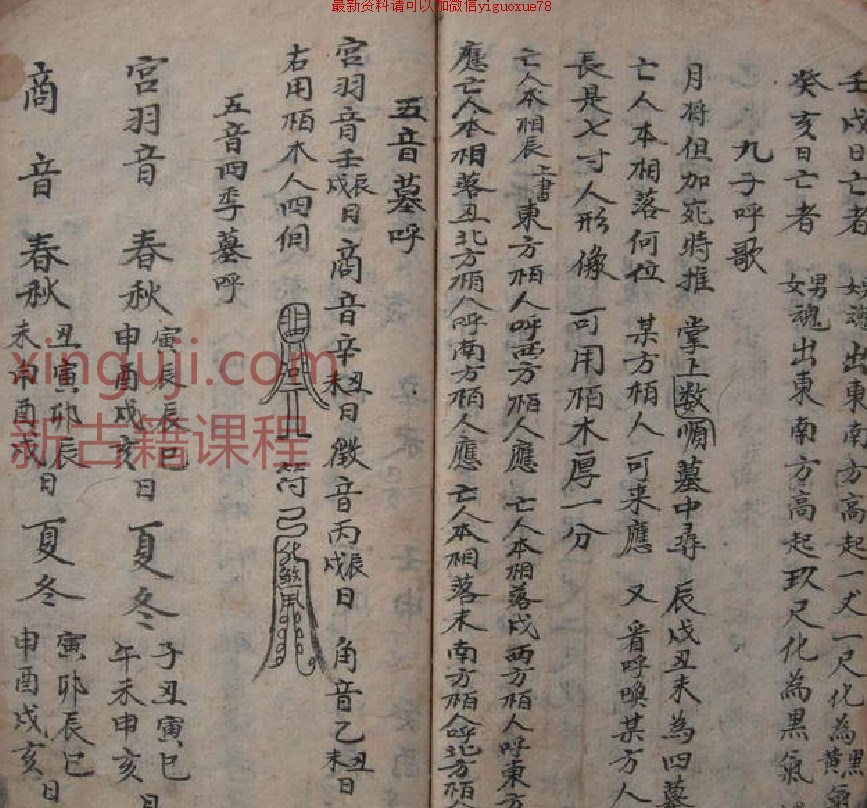 最新资料请可以加微信yiguoxue78
壬戌日亡者 出東南方高起一丈一尺化為黑黃氣
癸亥日亡者 男女魂出東南方高起玖尺化為黑氣
九子呼歌
月将但加死時推 掌上数順墓中尋 辰戌丑未為四墓
亡人本相落何位 某方栢人可来應 又看呼喚某方人
長是七寸人形像 可用栢木厚一分
亡人本相辰上書東方栢人呼西方栢人應 亡人本相落戌西方栢人呼東方
應亡人本相落丑北方栢人呼南方栢人應 亡人本相落未南方栢人呼北方栢
五音墓呼
宫羽音壬辰戌日 商音辛丑未日 徵音丙辰戌日 角音乙丑未日
右用栢木人四個 符
五音四季墓呼
宫羽音 春秋 寅辰辰巳申酉戌亥日 夏冬 子丑寅巳午未申亥日
商音 春秋 丑寅卯辰未申酉戌日 夏冬 寅卯辰巳申酉戌亥日
xinguji.com
新古籍课程